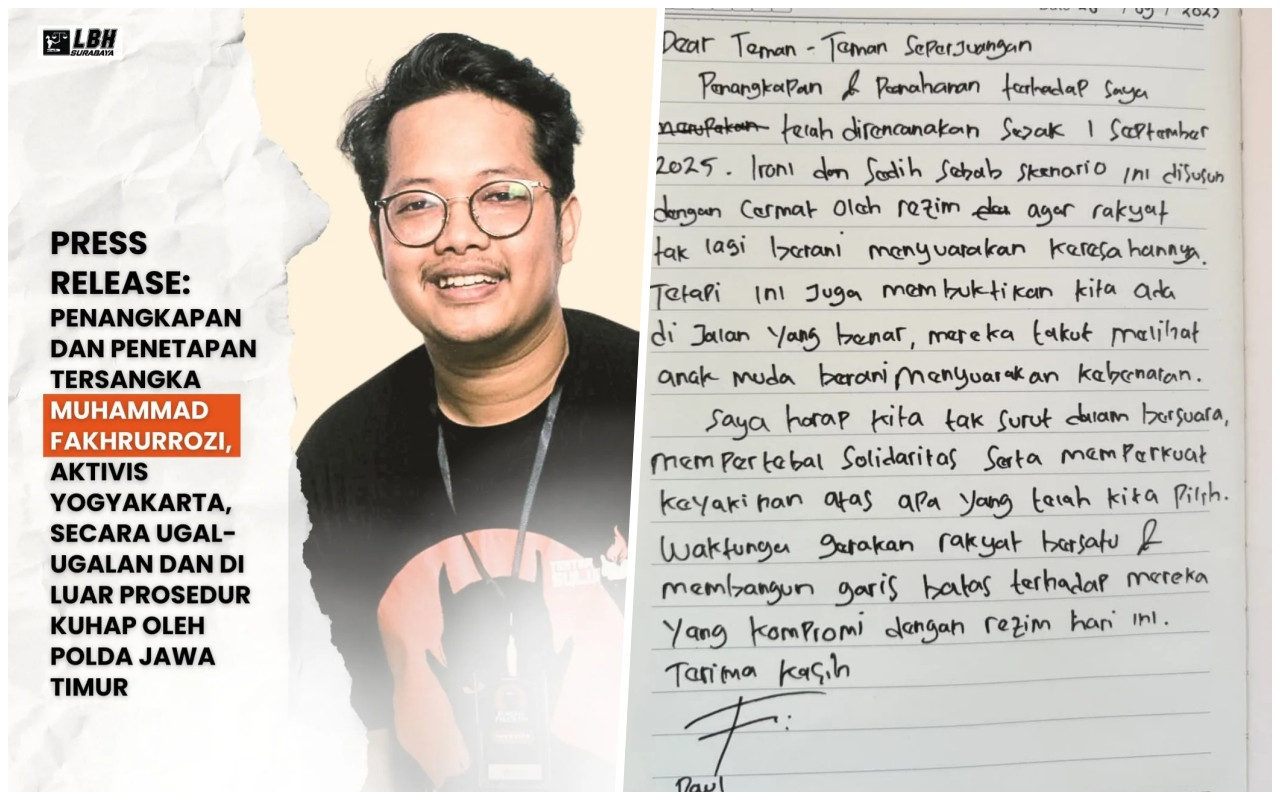 LBH
SURABAYA
PRESS
RELEASE:
PENANGKAPAN
DAN PENETAPAN
TERSANGKA
MUHAMMAD
FAKHRURROZI,
AKTIVIS
YOGYAKARTA,
SECARA UGAL-
UGALAN DAN DI
LUAR PROSEDUR
KUHAP OLEH
POLDA JAWA
TIMUR
Dear Teman - Teman Seperjuangan
Penangkapan & Penahanan terhadap saya
merupakan telah direncanakan Sejak 1 September
2025. Ironi dan Sedih Sebab Skenario ini disusun
dengan Cermat Oleh rezim agar rakyat
tak lagi berani menyuarakan keresahannya.
Tetapi ini Juga membuktikan kita ada
di Jalan yang benar, mereka takut melihat
anak muda berani menyuarakan kebenaran.
Saya harap kita tak surut dalam bersuara,
mempertebal Solidaritas Serta memperkuat
keyakinan atas apa yang telah kita Pilih.
Waktunya gerakan rakyat bersatu &
membangun garis batas terhadap mereka
yang kompromi dengan rezim hari ini.
Terima kasih
Paul